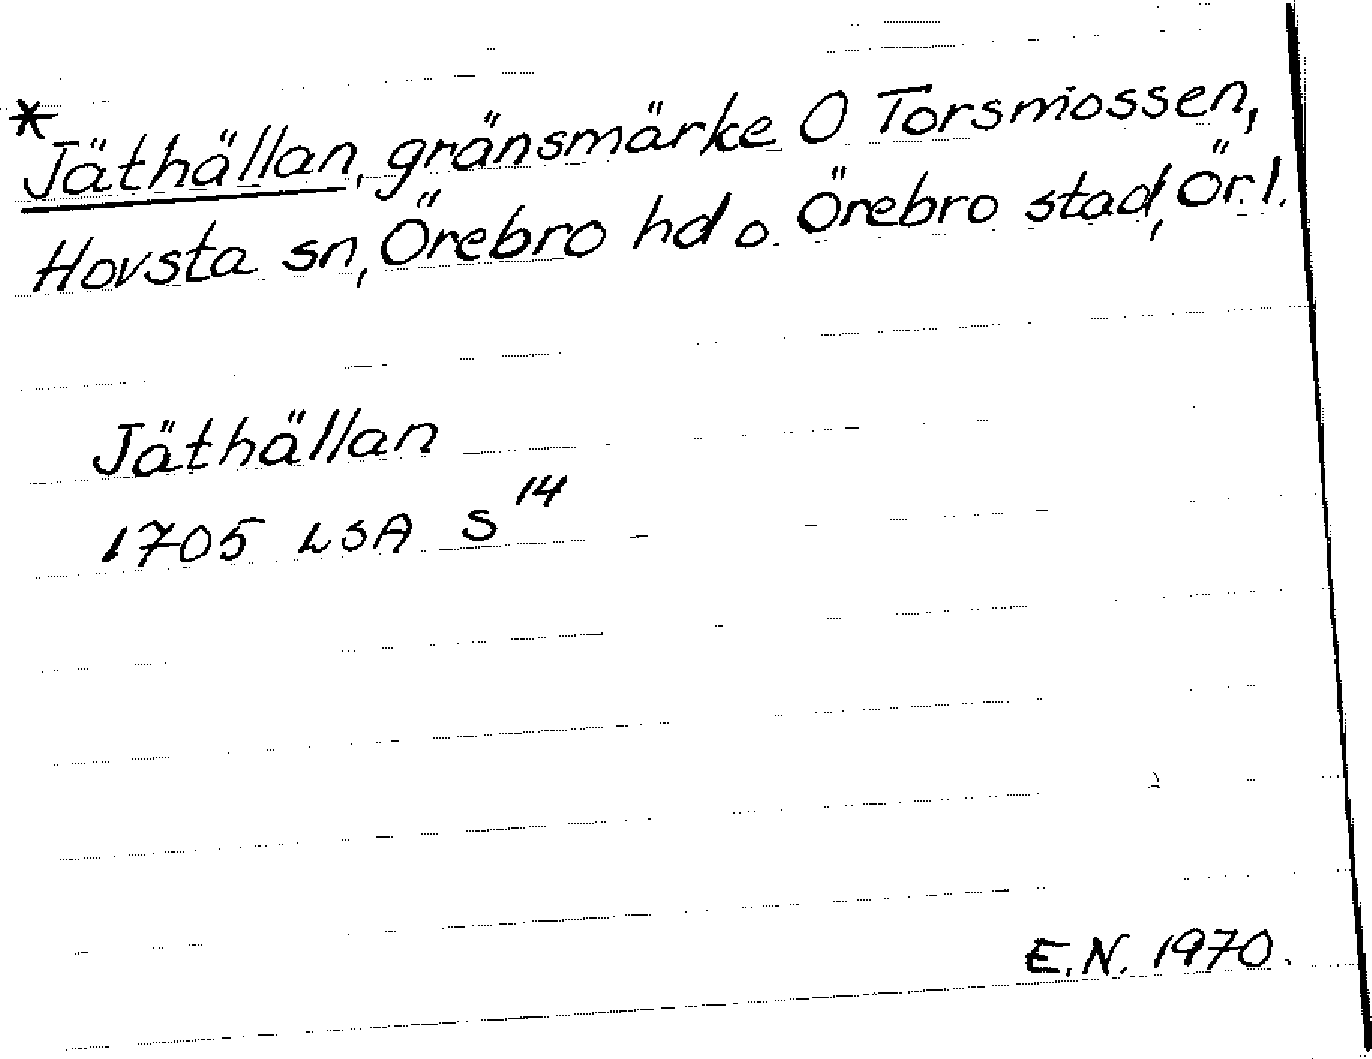 *Jäthällan, gränsmärke O Torsmossen,
Hovsta sn, Örebro hd o. Örebro stad, Ör. l.
Jäthällan
1705 LSA S 14
E.N. 1970.